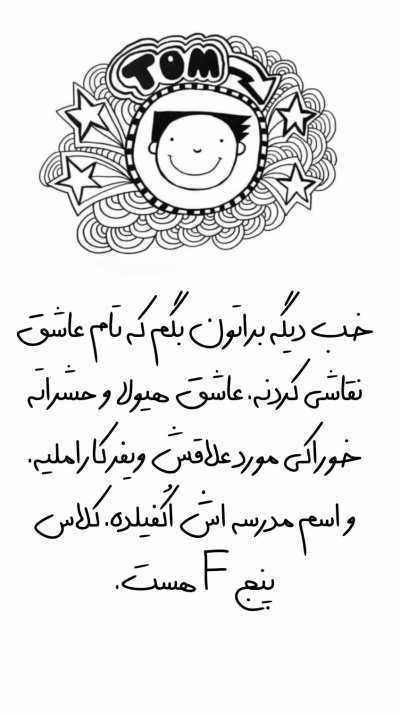 TOM
خب دیگه براتون بگم که تام عاشق
نقاشی کردنه. عاشق هیولا و حشراته
خوراکی مورد علاقش ویفر کاراملیه.
و اسم مدرسه اش اُکفیلده. کلاس
پنج F هست.